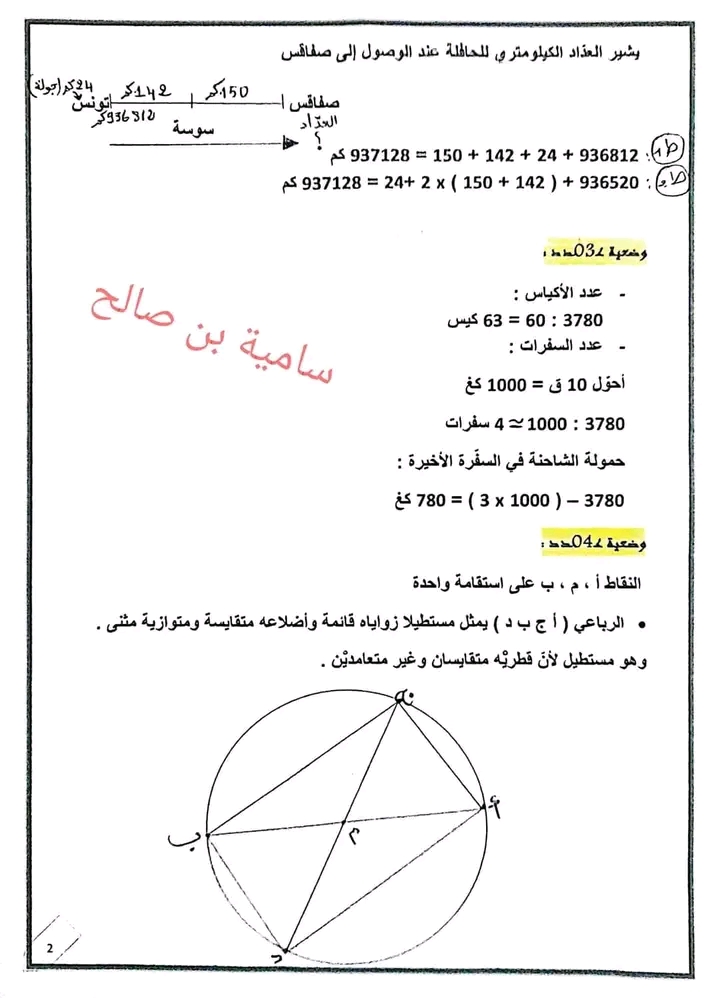 يشير العدّاد الكيلومتري للحافلة عند الوصول إلى صفاقس
24كم (جولة)
142كم
150كم
تونس
صفاقس
936812كم
سوسة
العدّاد
؟
ط1 : 936812 + 24 + 142 + 150 = 937128 كم
ط2 : 936520 + ( 142 + 150 ) x 2 +24 = 937128 كم
وضعية عـ03ـدد :
- عدد الأكياس :
3780 : 60 = 63 كيس
- عدد السفرات :
أحوّل 10 ق = 1000 كغ
3780 : 1000 ≃ 4 سفرات
حمولة الشاحنة في السفّرة الأخيرة :
3780 – ( 1000 x 3 ) = 780 كغ
سامية بن صالح
وضعية عـ04ـدد :
النقاط أ ، م ، ب على استقامة واحدة
• الرباعي ( أ ج ب د ) يمثل مستطيلا زواياه قائمة وأضلاعه متقايسة ومتوازية مثنى .
وهو مستطيل لأنّ قطريْه متقايسان وغير متعامديْن .
أ
م
ب
د
2